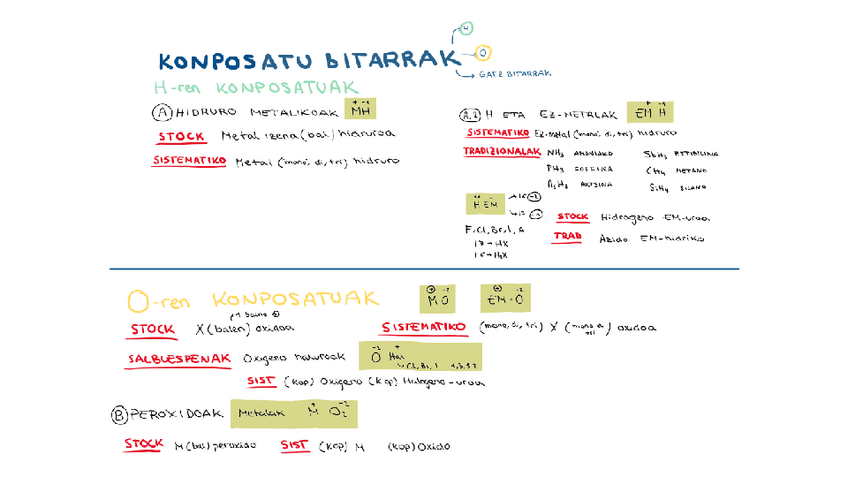 KONPOSATU BITARRAK
H
O
GATZ BITARRAK
H-ren KONPOSATUAK
A HIDRURO METALIKOAK + -1 MH
STOCK Metal izena (bal) hidruroa
SISTEMATIKO Metal (mono, di, tri) hidruro
A.2 H ETA EZ-METALAK + -1 EM H
SISTEMATIKO Ez-metal (mono, di, tri) hidruro
TRADIZIONALAK NH3 AMONIAKO SbH3 ESTIBINA
PH3 FOSFINA CH4 METANO
AsH3 ARTSINA SiH4 SILANO
H EM 16 -2
17 -1
F, Cl, Br, I, A
17 → HX
16 → H2X
STOCK Hidrogeno EM-uroa
TRAD Azido EM-hidriko
O-ren KONPOSATUAK + -2 M O + -2 EM - O
+1 baino
STOCK X (balen) oxidoa
SISTEMATIKO (mono, di, tri) X (mono a tri) oxidoa
SALBUESPENAK Oxigeno haluroak -2 + O Hal
Cl, Br, I 1,3,5,7
SIST (kop) Oxigeno (kop) Halogeno-uroa
B PEROXIDOAK Metalak + -2 M O2
STOCK M (bal) peroxido SIST (kop) M (kop) Oxido